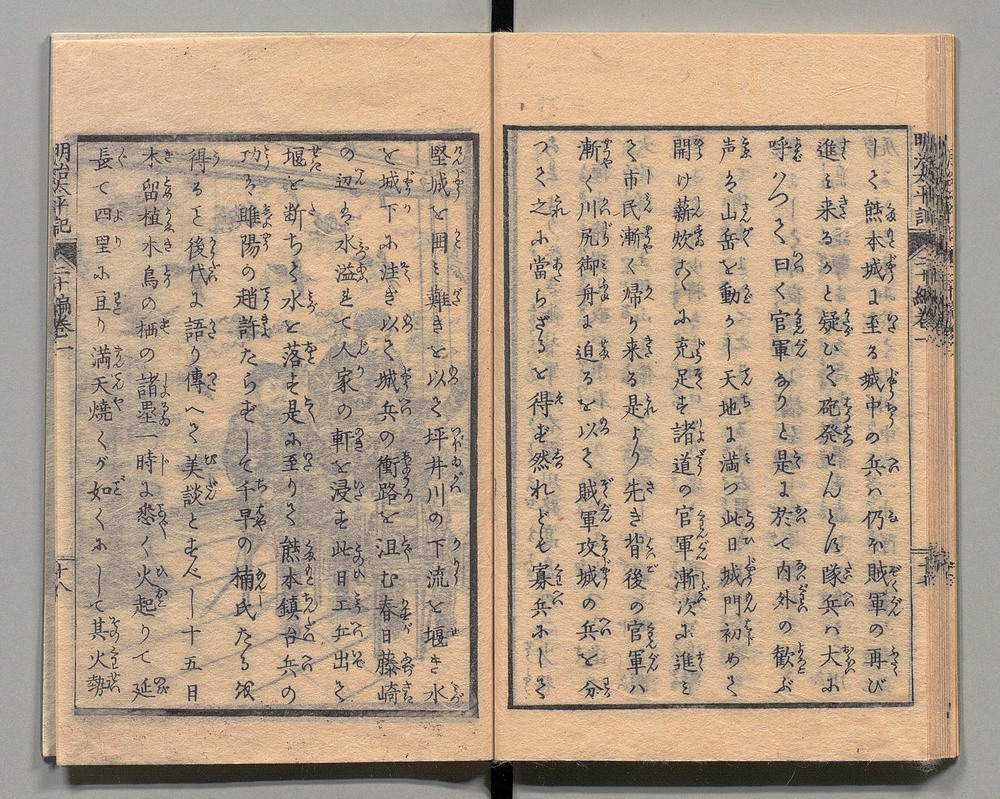 しく熊本城に至る城中の兵ハ仍ほ賊軍の再び
進ミ来るかと疑ひて砲発せんとす隊兵ハ大に
呼ハつて曰く官軍なりと是に於て内外の歓ぶ
声は山岳を動かし天地に満つ此日城門初めて
開け薪炊あくに充足す諸道の官軍漸次に進ミ
て市民漸く帰り来る是より先き背後の官軍ハ
漸く川尻御舟に迫るを以て賊軍攻城の兵を分
つて之に當らざるを得ず然れども寡兵にして
堅城を囲ミ難きを以て坪井川の下流を堰き水
を城下に注ぎ以て城兵の衝路を沮む春日藤崎
の辺は水溢れて人家の軒を浸す此日工兵出て
堰を断ちて水を落す是に至りて熊本鎮台兵の
功は雎陽の趙許たらずして千早の楠氏たる便
得ると後代に語り傳へて美談とすべし十五日
木留植木鳥の栖の諸塁一時に悉く火起りて延
長て四里に亘り満天焼くが如くにして其火勢
明治太平記
二十編巻一
十八